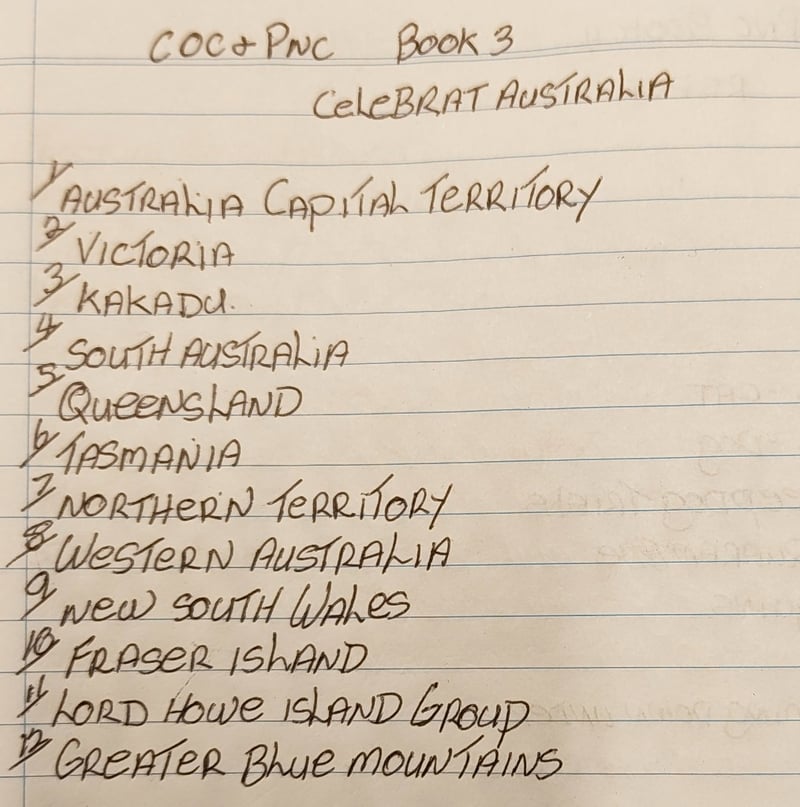 COC & PNC Book 3
CELEBRAT AUSTRALIA
1/ AUSTRALIA CAPITAL TERRITORY
2/ VICTORIA
3/ KAKADU.
4/ SOUTH AUSTRALIA
5/ QUEENSLAND
6/ TASMANIA
7/ NORTHERN TERRITORY
8/ WESTERN AUSTRALIA
9/ NEW SOUTH WALES
10/ FRASER ISLAND
11/ LORD HOWE ISLAND GROUP
12/ GREATER BLUE MOUNTAINS